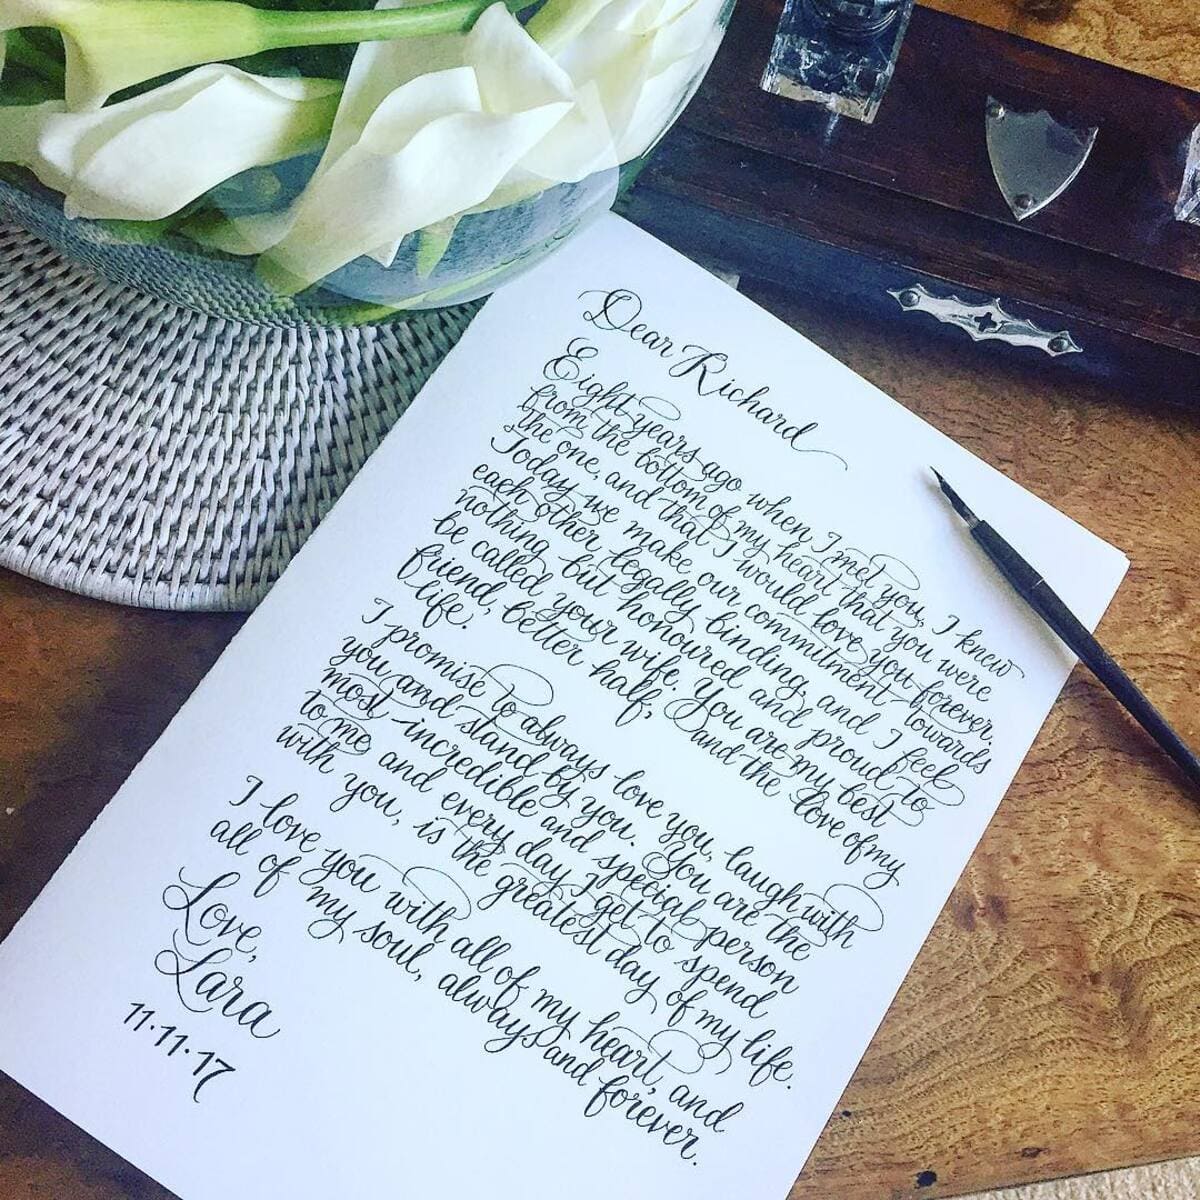 Dear Richard
Eight years ago when I met you, I knew
from the bottom of my heart that you were
the one, and that I would love you forever.
Today we make our commitment towards
each other legally binding, and I feel
nothing but honoured and proud to
be called your wife. You are my best
friend, better half, and the love of my
life.
I promise to always love you, laugh with
you and stand by you. You are the
most incredible and special person
to me and every day I get to spend
with you, is the greatest day of my life.
I love you with all of my heart, and
all of my soul, always and forever.
Love,
Lara
11·11·17